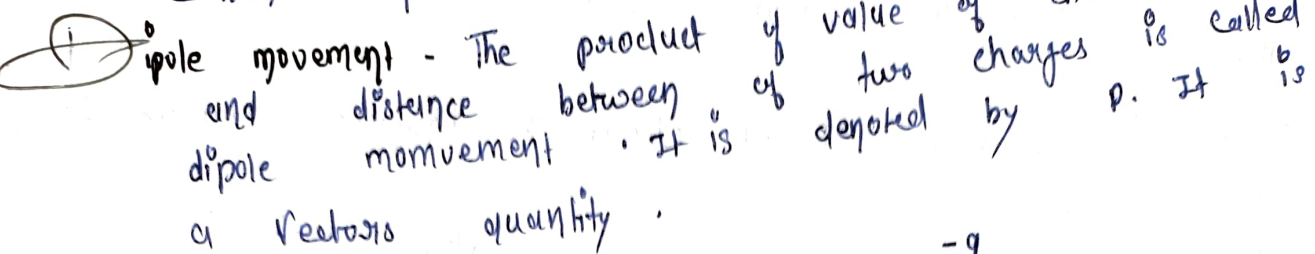 Dipole movement - The product of value of
and distance between of two charges is called
dipole momvement . It is denoted by P. It is
a vectors quantity .
-q